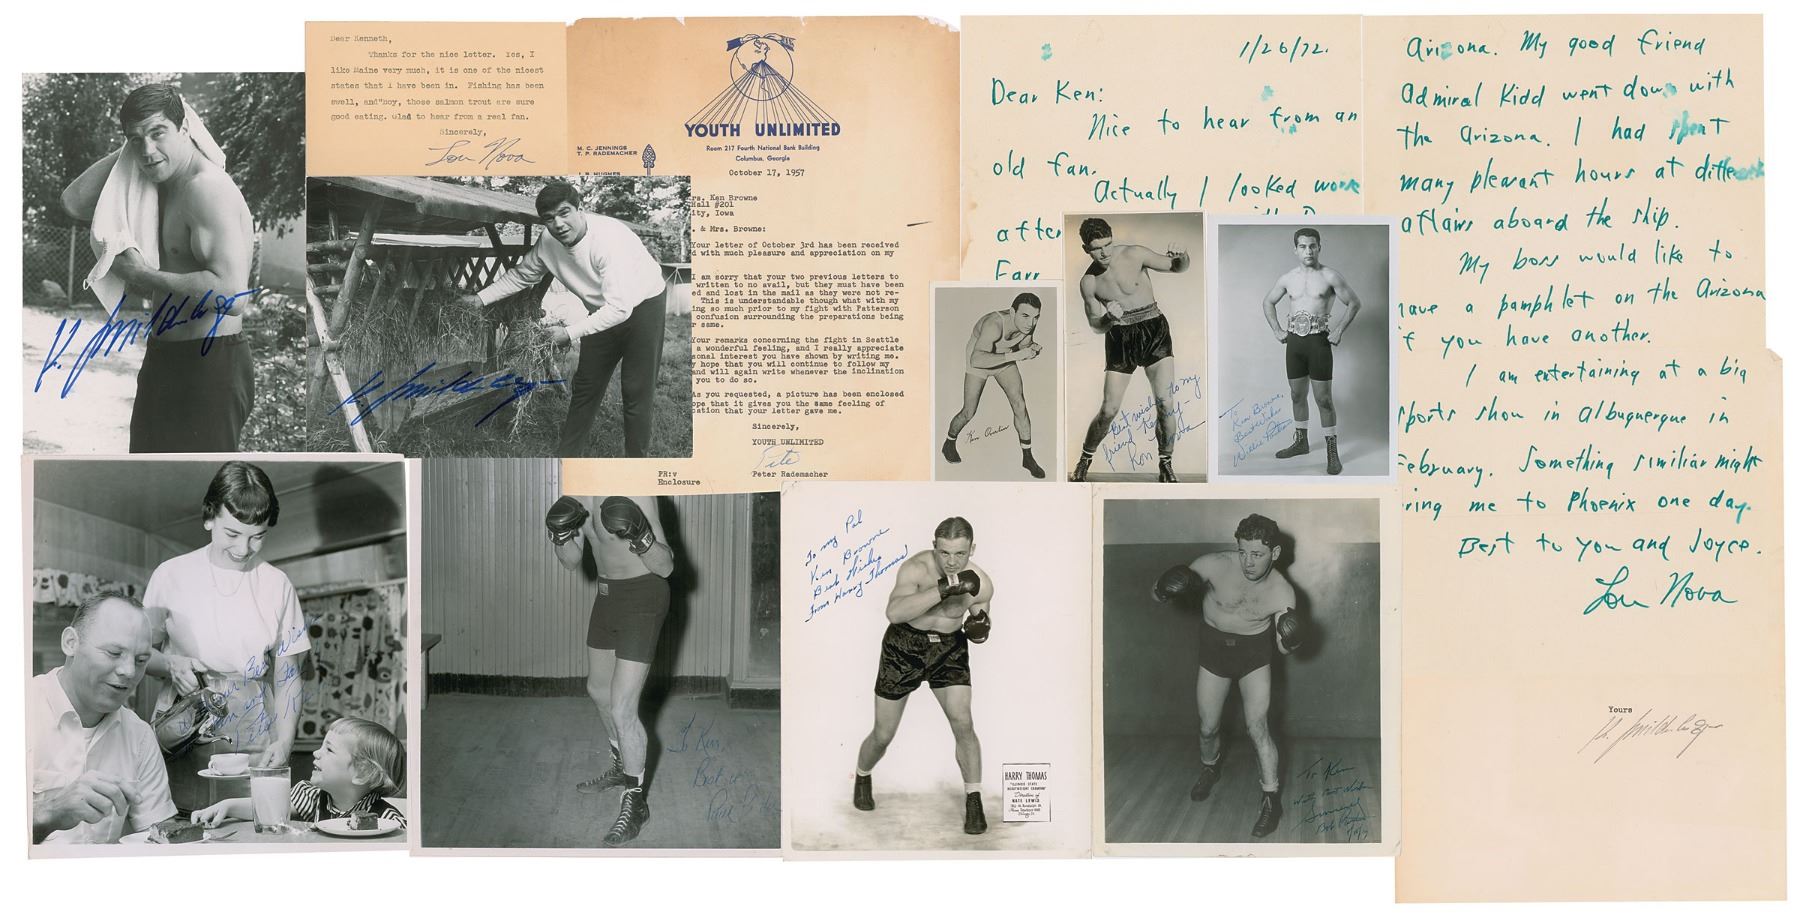 Dear Kenneth,
Thanks for the nice letter. Yes, I
like Maine very much, it is one of the nicest
states that I have been in. Fishing has been
swell, and"boy, those salmon trout are sure
good eating. Glad to hear from a real fan.
Sincerely,
Lou Nova
YOUTH UNLIMITED
Room 217 Fourth National Bank Building
Columbus, Georgia
M. C. JENNINGS
T. P. RADEMACHER
J. B. HUGHES
October 17, 1957
rs. Ken Browne
Hall #201
ity, Iowa
. & Mrs. Browne:
Your letter of October 3rd has been received
d with much pleasure and appreciation on my
I am sorry that your two previous letters to
written to no avail, but they must have been
ed and lost in the mail as they were not re-
This is understandable though what with my
ing so much prior to my fight with Patterson
confusion surrounding the preparations being
r same.
Your remarks concerning the fight in Seattle
a wonderful feeling, and I really appreciate
sonal interest you have shown by writing me.
y hope that you will continue to follow my
and will again write whenever the inclination
you to do so.
As you requested, a picture has been enclosed
ope that it gives you the same feeling of
ation that your letter gave me.
Sincerely,
YOUTH UNLIMITED
Pete
PR:v
Peter Rademacher
Enclosure
1/26/72.
Dear Ken:
Nice to hear from an
old fan.
Actually I looked worse
after
Farr
Arizona. My good friend
Admiral Kidd went down with
the Arizona. I had spent
many pleasant hours at different
affairs aboard the ship.
My boss would like to
have a pamphlet on the Arizona
if you have another.
I am entertaining at a big
sports show in Albuquerque in
February. Something similiar might
bring me to Phoenix one day.
Best to you and Joyce.
Lou Nova
K. Mildenberger
K. Mildenberger
Best wishes to my
friend Kenny -
Ron
To
Ken Browne,
Best Wishes
Willie Pastrano
Best Wishes
Pete
To Ken,
Best w
To my Pal
Ken Browne
Best Wishes
from Harry Thomas
HARRY THOMAS
"ILLINOIS STATE
HEAVYWEIGHT CHAMPION"
Direction of
NATE LEWIS
To Ken
With Best Wishes
Sincerely
Bob
Yours
K. Mildenberger